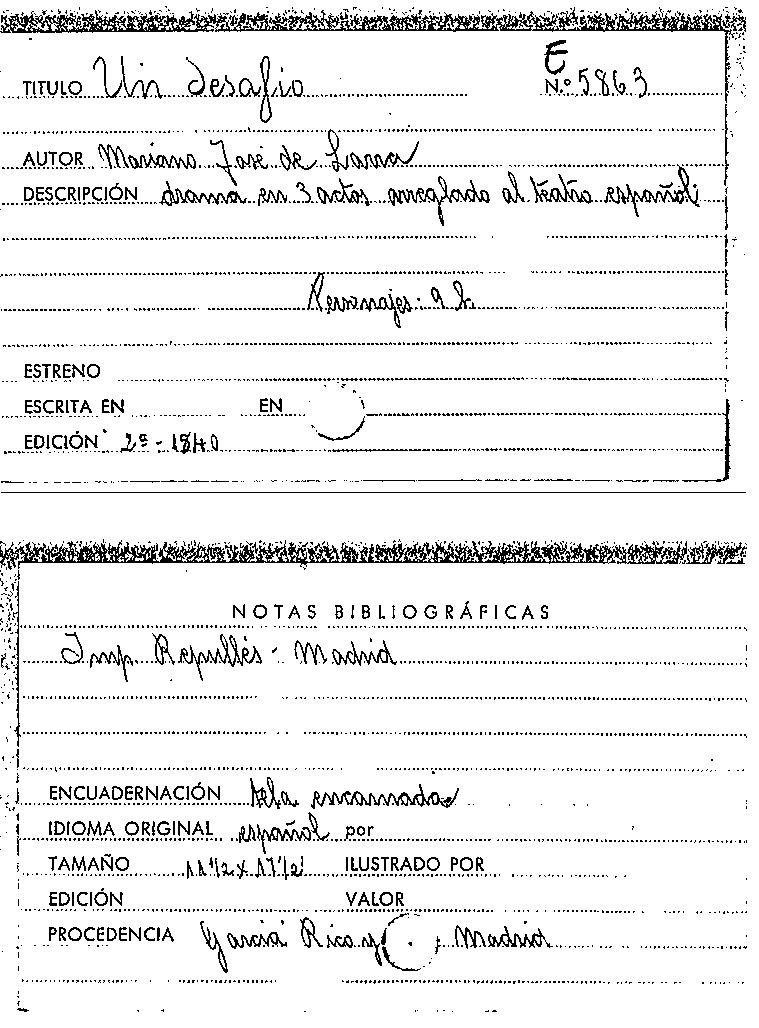 E
TITULO Un desafio N.º 5863
AUTOR Mariano José de Larra
DESCRIPCIÓN drama en 3 actos arreglado al teatro español
Personajes: 9 h.
ESTRENO
ESCRITA EN EN
EDICIÓN 2ª - 1840
NOTAS BIBLIOGRÁFICAS
Imp. Repullés - Madrid
ENCUADERNACIÓN tela encarnada
IDIOMA ORIGINAL español por
TAMAÑO 11 1/2 x 17 1/2 ILUSTRADO POR
EDICIÓN VALOR
PROCEDENCIA García Rico y Madrid